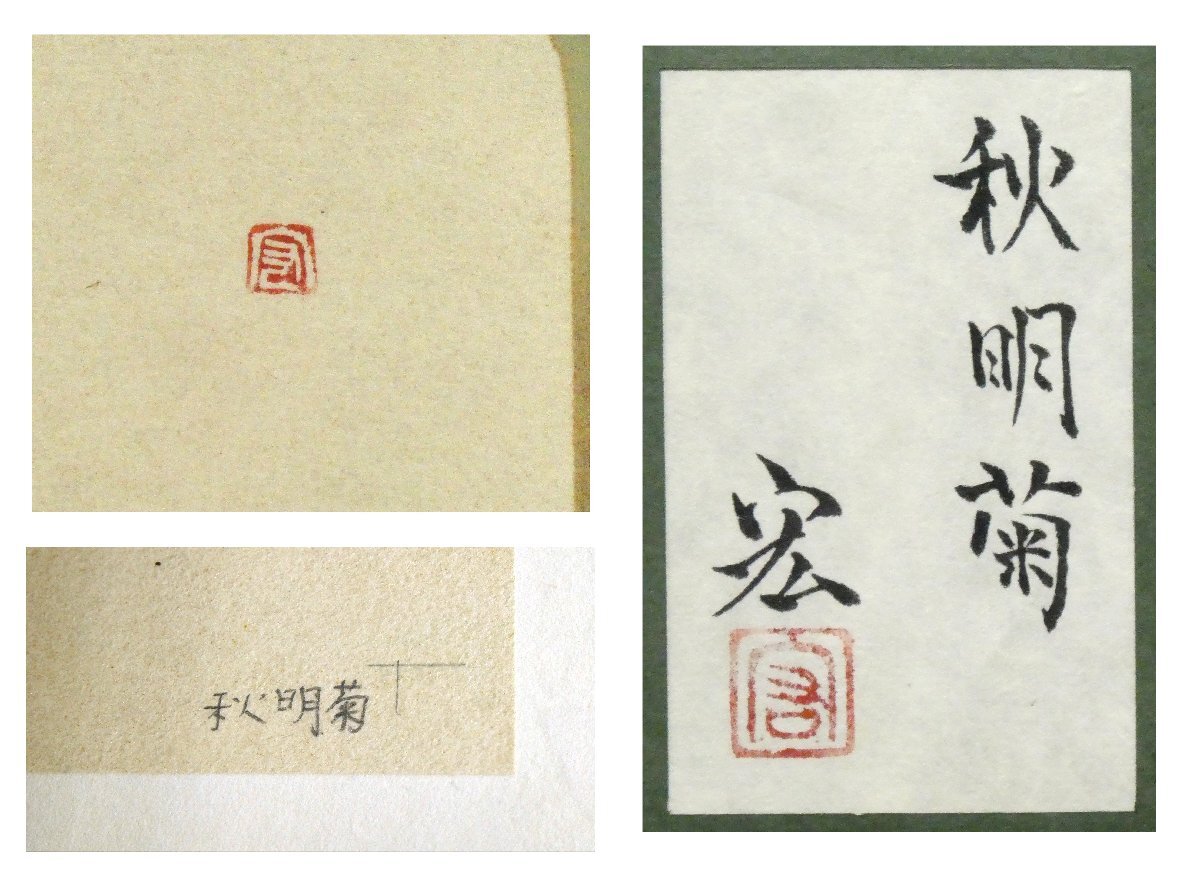 秋明菊
秋明菊
宏